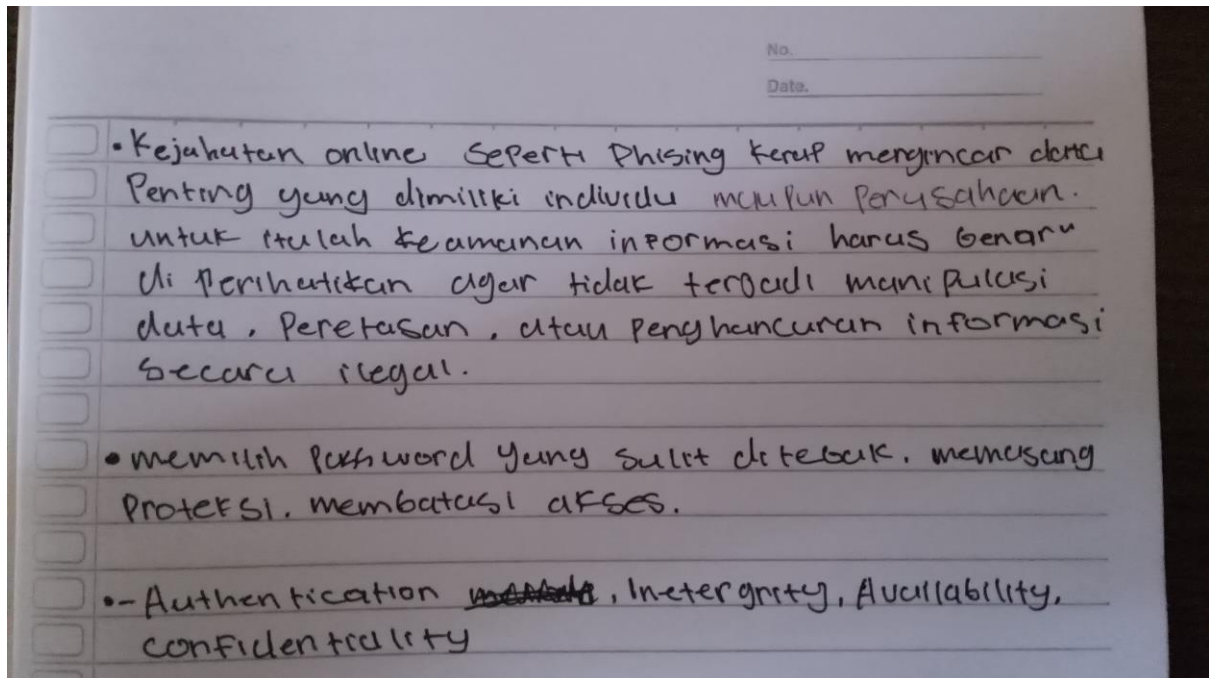 No.
Date.
• Kejahatan online seperti Phising kerap mengincar data
Penting yang dimiliki individu maupun Perusahaan.
untuk itulah keamanan informasi harus benar"
di Perihatikan agar tidak terjadi manipulasi
data, Peretasan, atau penghancuran informasi
secara ilegal.
• memilih Password yang sulit ditebak, memasang
Proteksi, membatasi akses.
•- Authentication , Inetergrity, Availability,
confidentiality